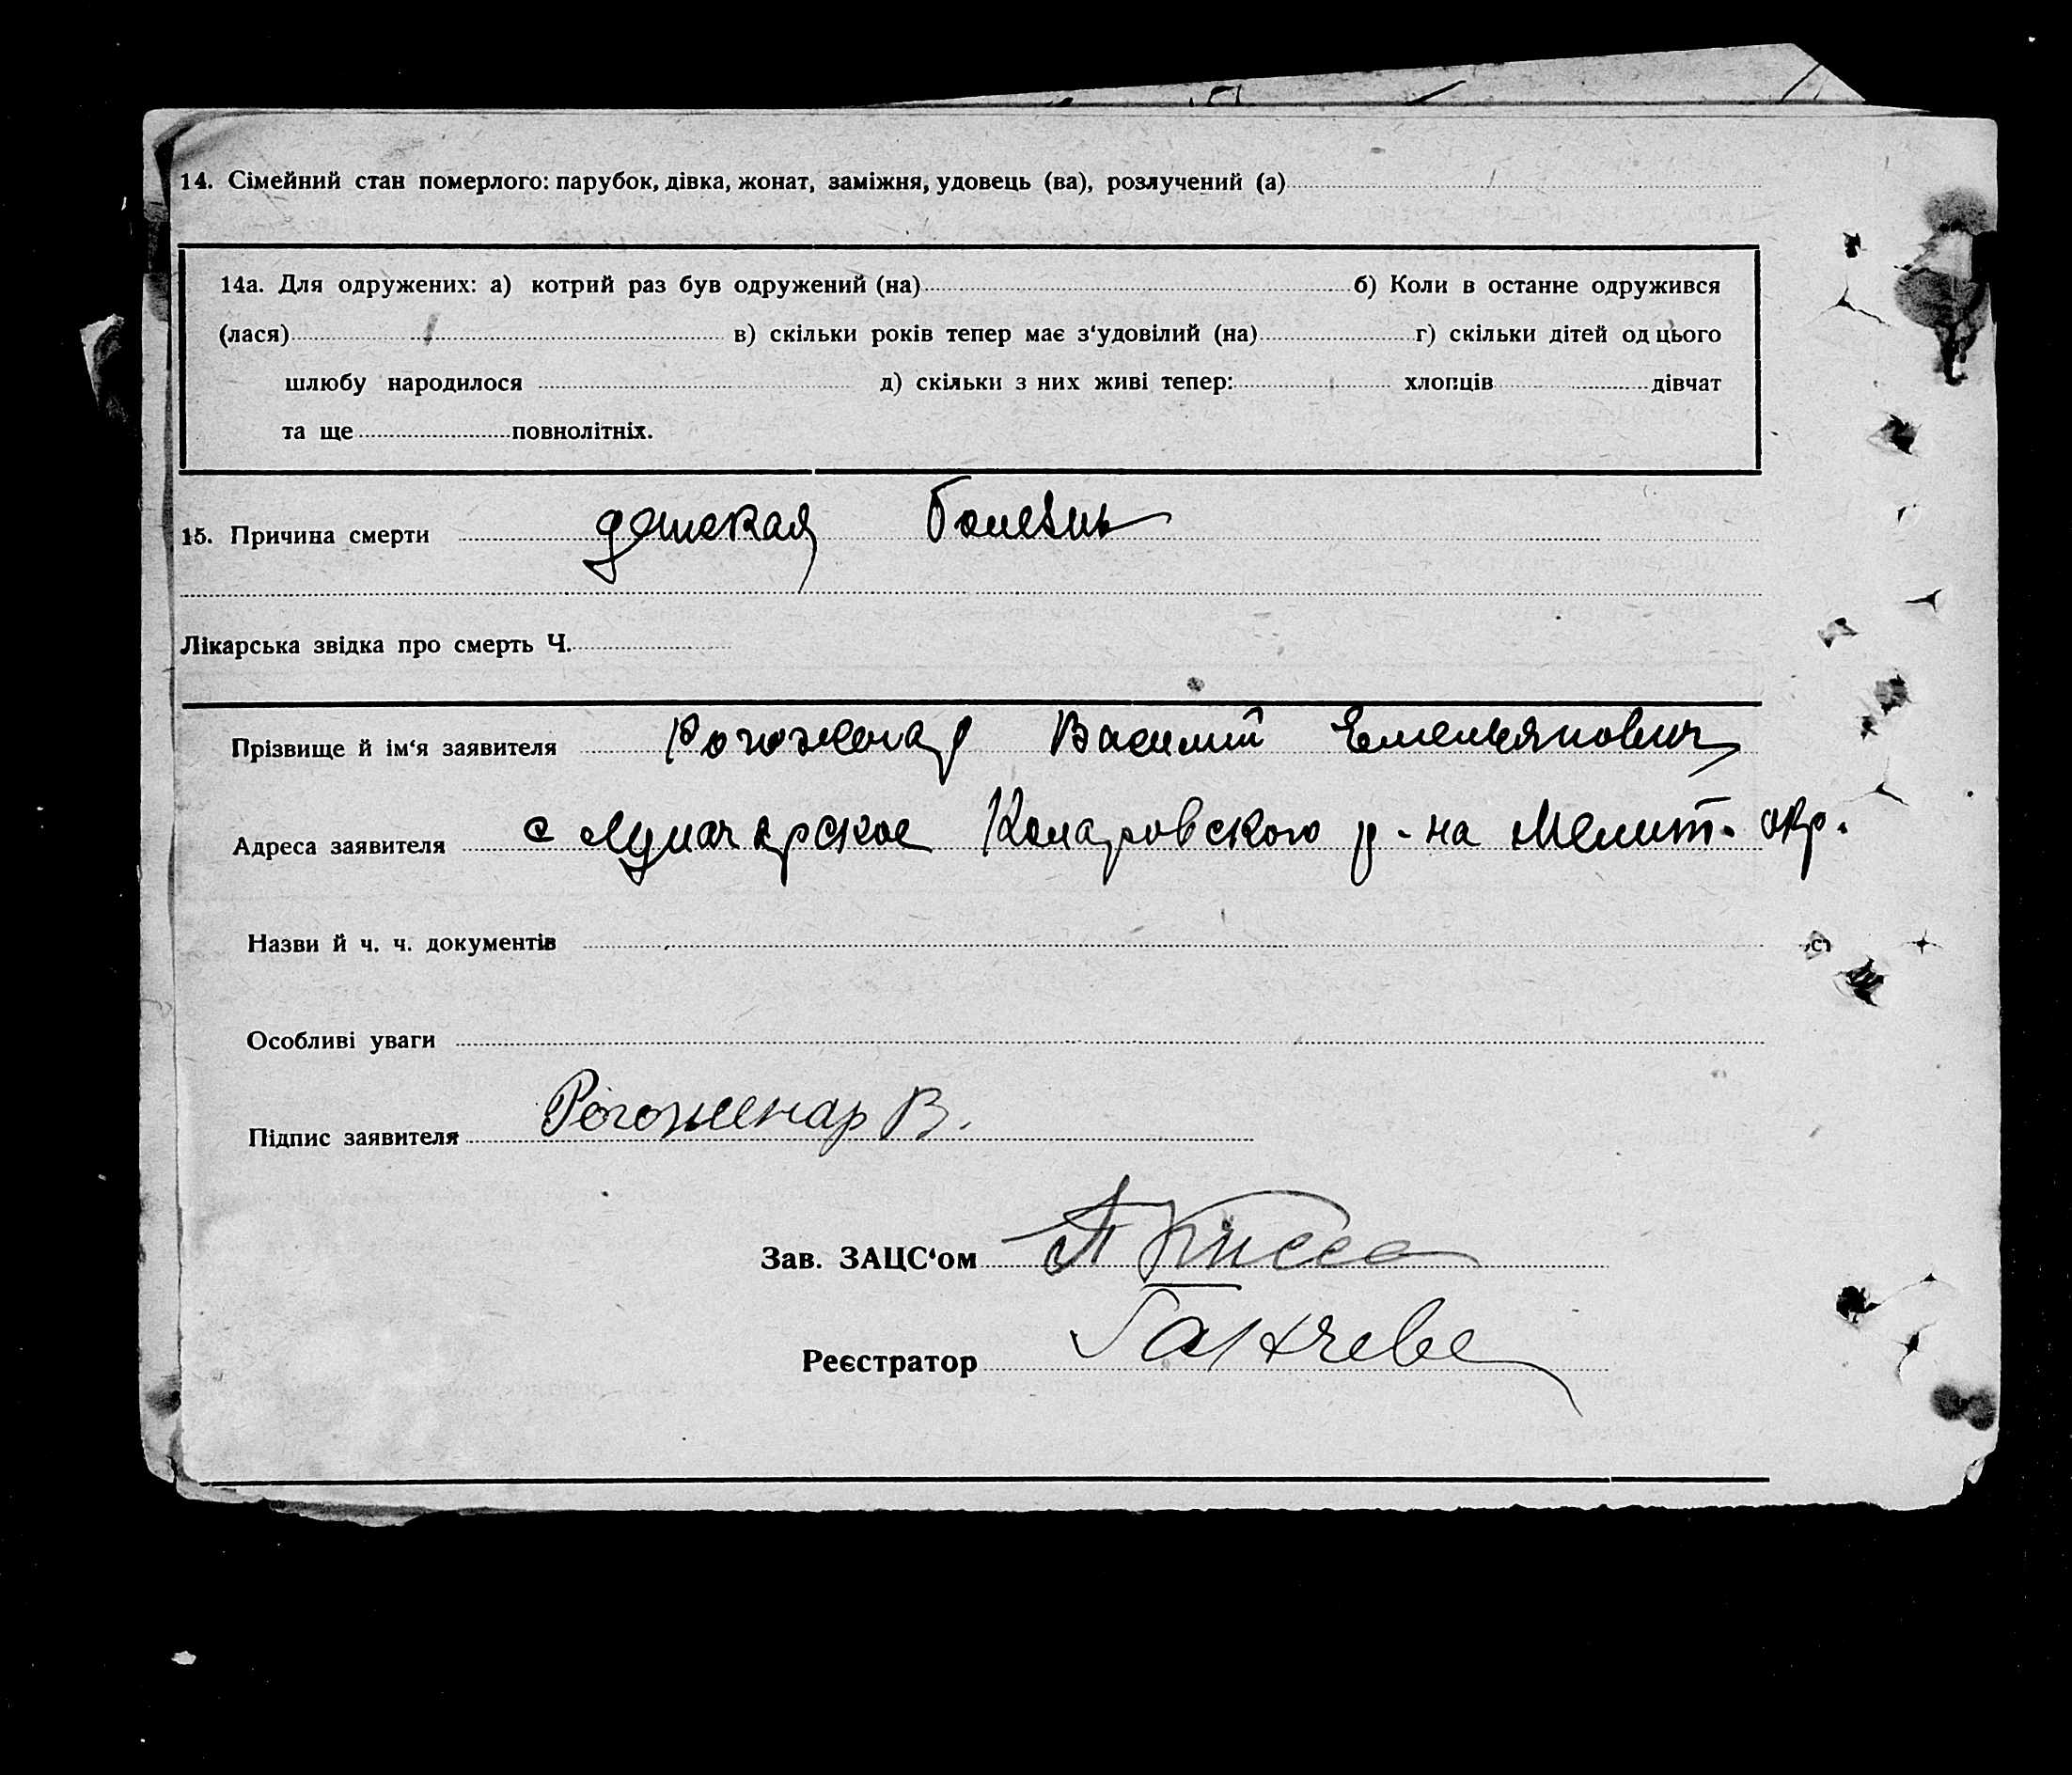 14. Сімейний стан померлого: парубок, дівка, жонат, заміжня, удовець (ва), розлучений (а)
14а. Для одружених: а) котрий раз був одружений (на) б) Коли в останнє одружився
(лася) в) скільки років тепер має з‘удовілий (на) г) скільки дітей од цього
шлюбу народилося д) скільки з них живі тепер: хлопців дівчат
та ще повнолітніх.
15. Причина смерти детская болезнь
Лікарська звідка про смерть Ч.
Прізвище й ім‘я заявителя Рогоженар Василий Емельянович
Адреса заявителя с Луначарское Коларовского р-на Мелит. окр.
Назви й ч. ч. документів
Особливі уваги
Підпис заявителя Рогоженар В.
Зав. ЗАЦС‘ом
Реєстратор